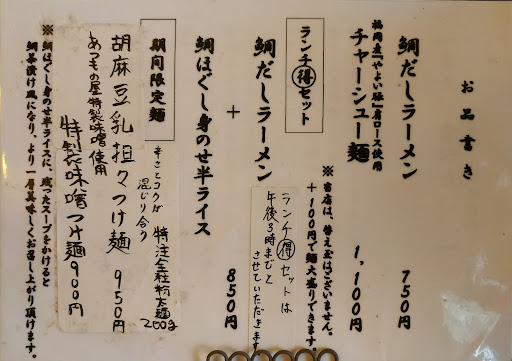 お品書き
鯛だしラーメン 750円
福岡産『やよい豚』肩ロース使用
チャーシュー麺 1,100円
※当店は、替え玉はございません。
+100円で麺大盛りできます。
ランチ得セット
鯛だしラーメン
+
鯛ほぐし身のせ半ライス 850円
ランチ得セットは
午後3時までと
させていただきます
期間限定麺
辛さとコクが
混じり合う
特注全粒粉太麺
200g
胡麻豆乳担々つけ麺 950円
あつもの屋特製味噌使用
特製味噌つけ麺 900円
※鯛ほぐし身のせ半ライスに、残ったスープをかけると
鯛茶漬け風になり、より一層美味しくお召し上がり頂けます。